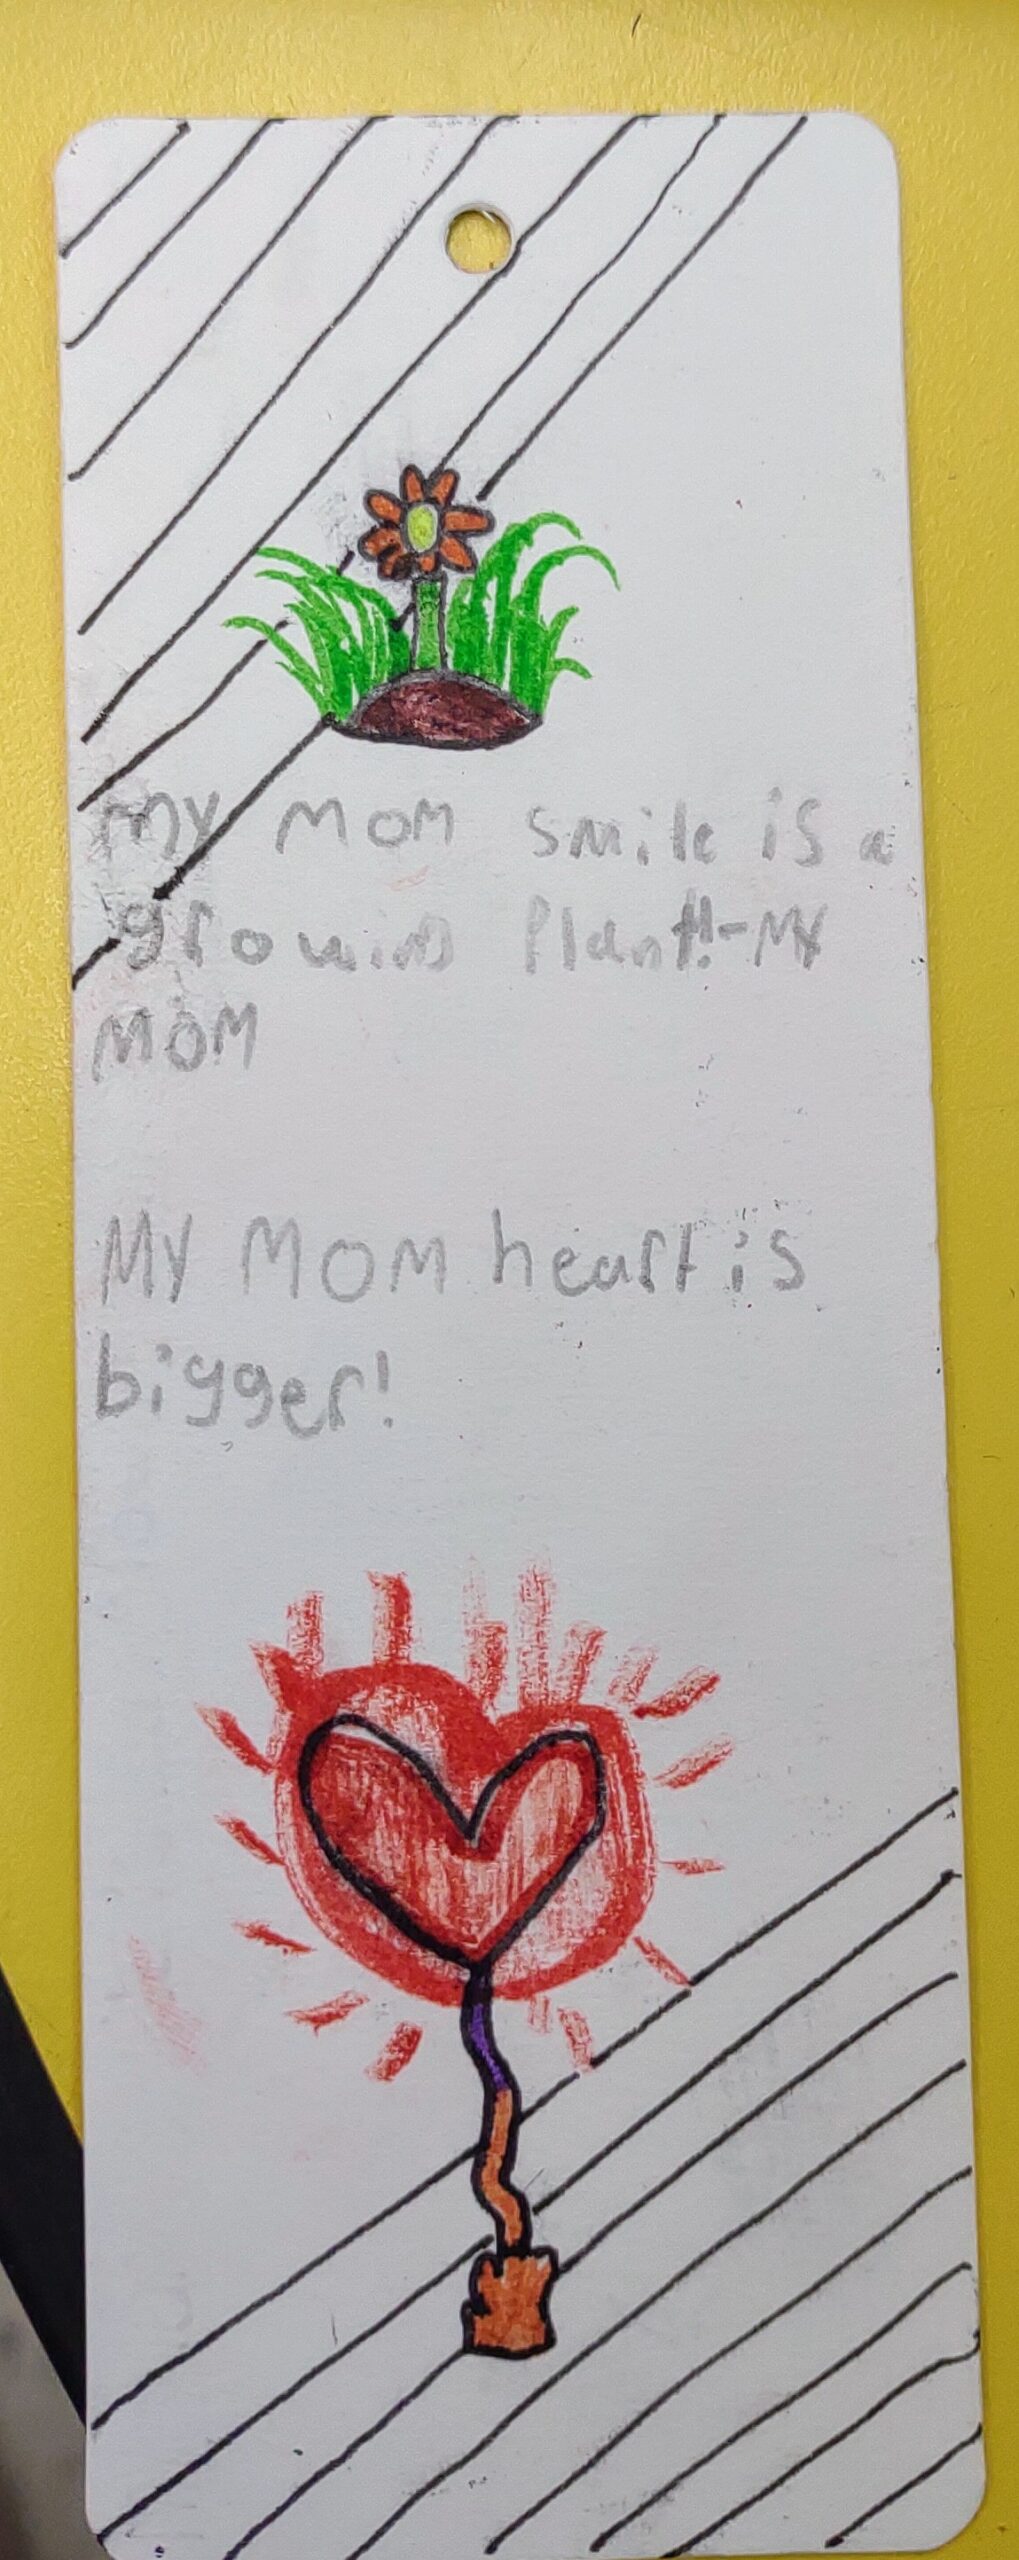 My MOM smile is a
growing Plant!!-My
MOM
My MOM heart is
bigger!